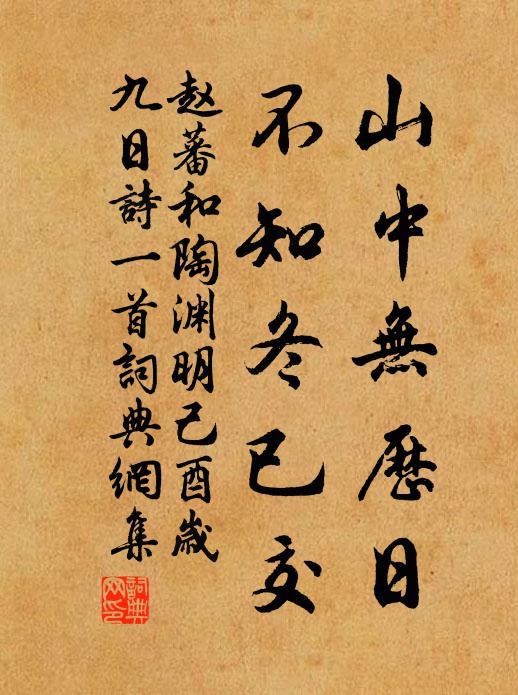 山中無歷日
不知冬已交
赵蕃和陶渊明己酉歲
九日詩一首詞典網集
詞典
网印